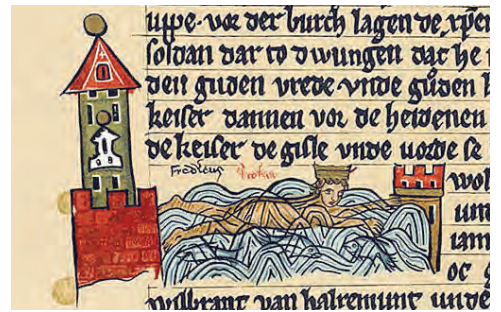 uppe· vor der burch lagen de xpen
soldan dar to dwungen dat he
den guden vrede·vnde guden
keiser dannen vor de heidenen
de keiser de gisle vnde uorde se
wol
oc
wilbrant van halremunt unde